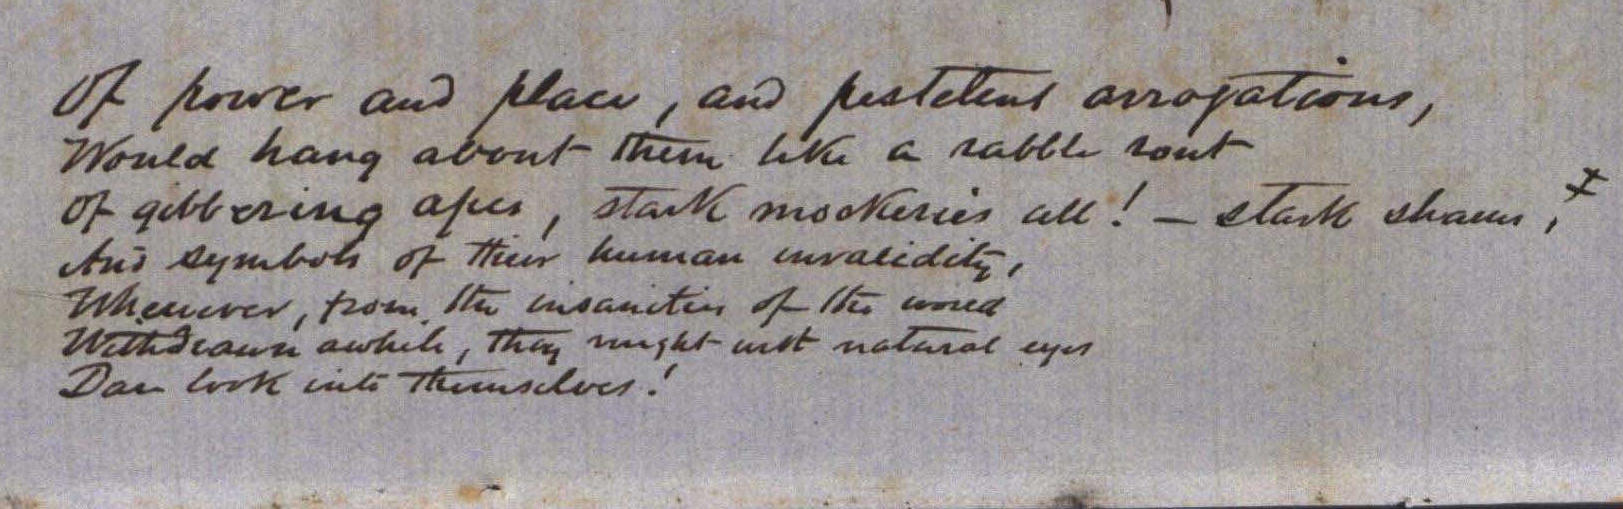 Of power and place, and pestilent arrogations,
Would hang about them like a rabble rout
Of gibbering apes, stark mockeries all! — stark shams, ‡
And symbols of their human invalidity,
Whenever, from the insanities of the world
Withdrawn awhile, they might with natural eyes
Dare look into themselves!